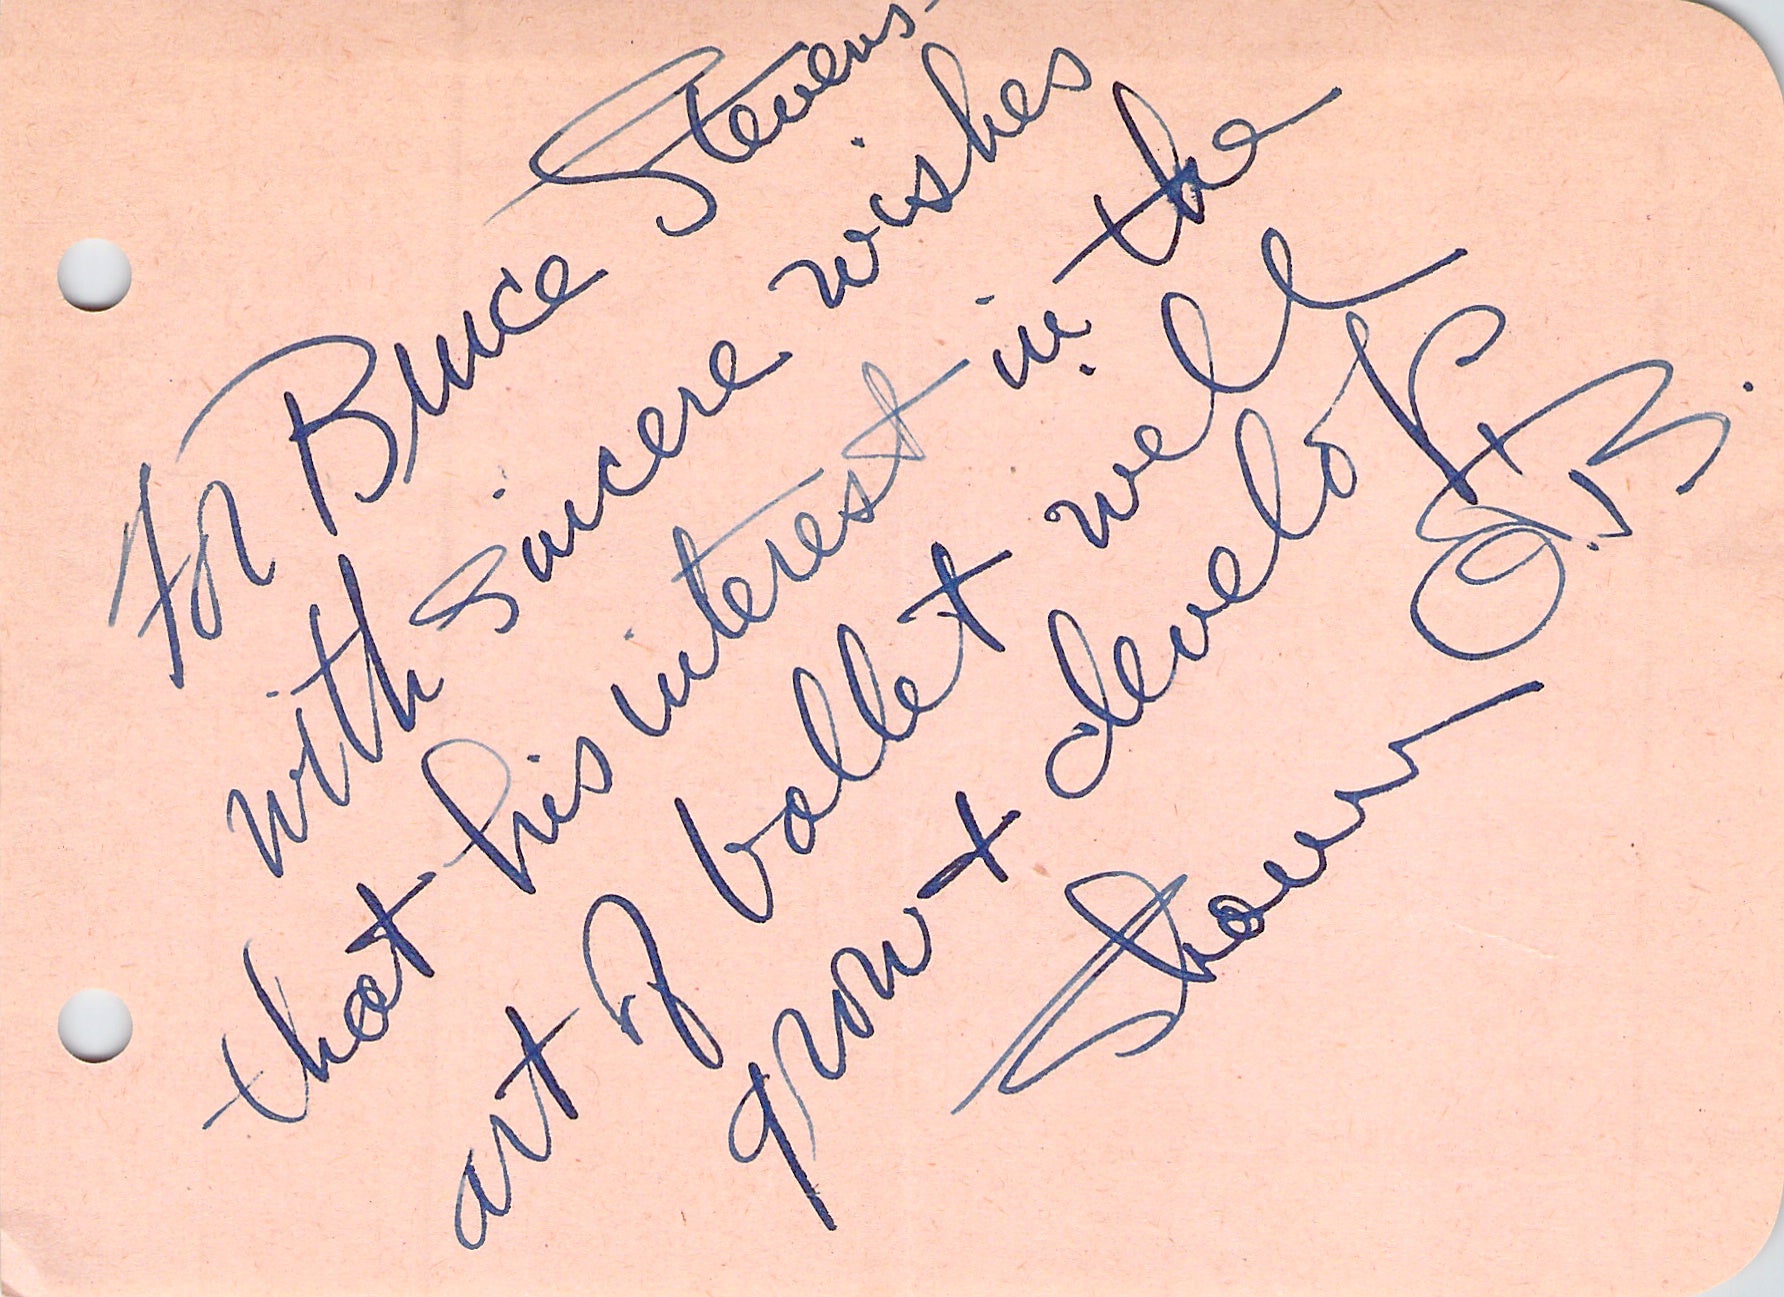 For Bruce Stevens -
with sincere wishes
that his interest in the
art of ballet will
grow & develop
Shawn